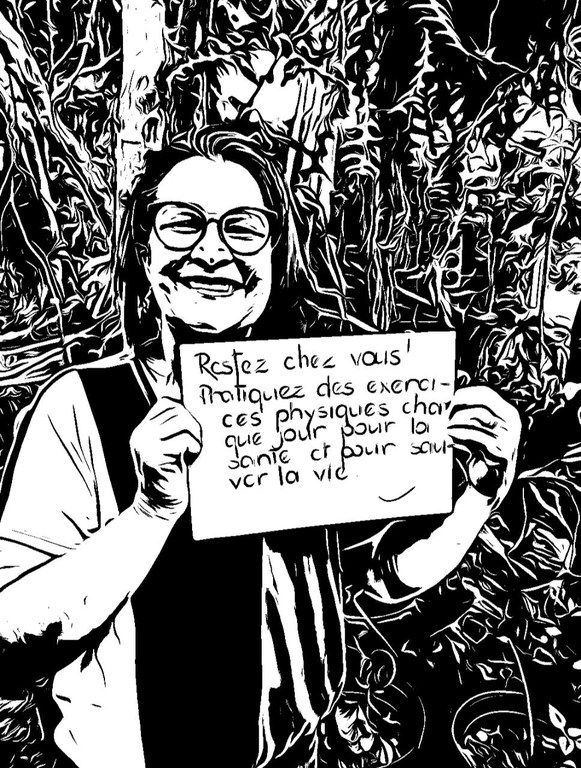 Restez chez vous!
Pratiquez des exerci-
ces physiques cha
que jour pour la
santé et pour sau-
ver la vie